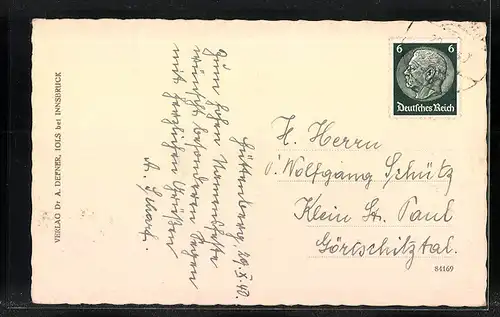 VERLAG Dr. A. DEFNER, IGLS bei INNSBRUCK
Hüttenberg, 29.X.40.
Zum hohen Namensfeste
wünscht besonderen Segen
mit herzlichen Grüßen
A.
6 6
Deutsches Reich
H. Herrn
Wolfgang Schütz
Klein St. Paul
Görtschitztal.
84169